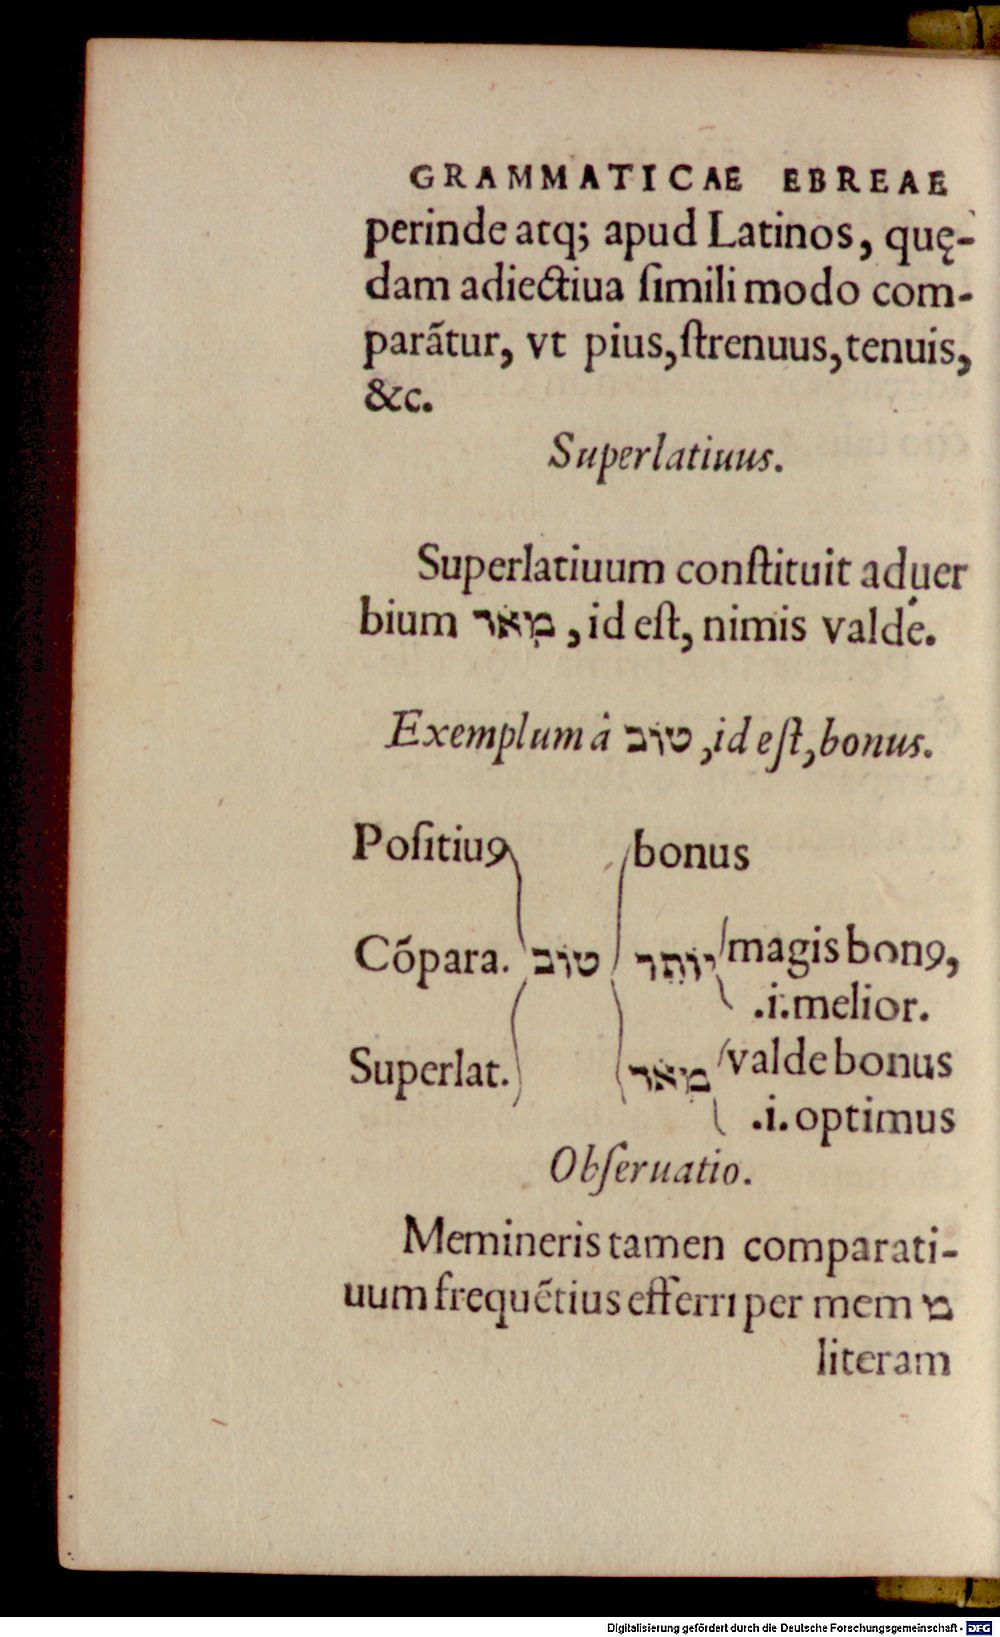 GRAMMATICAE EBREAE
perinde atq; apud Latinos, quę-
dam adiectiua ſimili modo com-
parãtur, vt pius, ſtrenuus, tenuis,
&c.
Superlatiuus.
Superlatiuum conſtituit aduer
bium מְאֹר, id eſt, nimis valdé.
Exemplum à טוֹב, id eſt, bonus.
Poſitiuꝯ bonus
Cõpara. טוֹב יוֹתֵר magis bonꝯ,
.i. melior.
Superlat. מְאֹר valde bonus
.i. optimus
Obſeruatio.
Memineris tamen comparati-
uum frequẽtius efferri per mem מ
literam
Digitalisierung gefördert durch die Deutsche Forschungsgemeinschaft - DFG